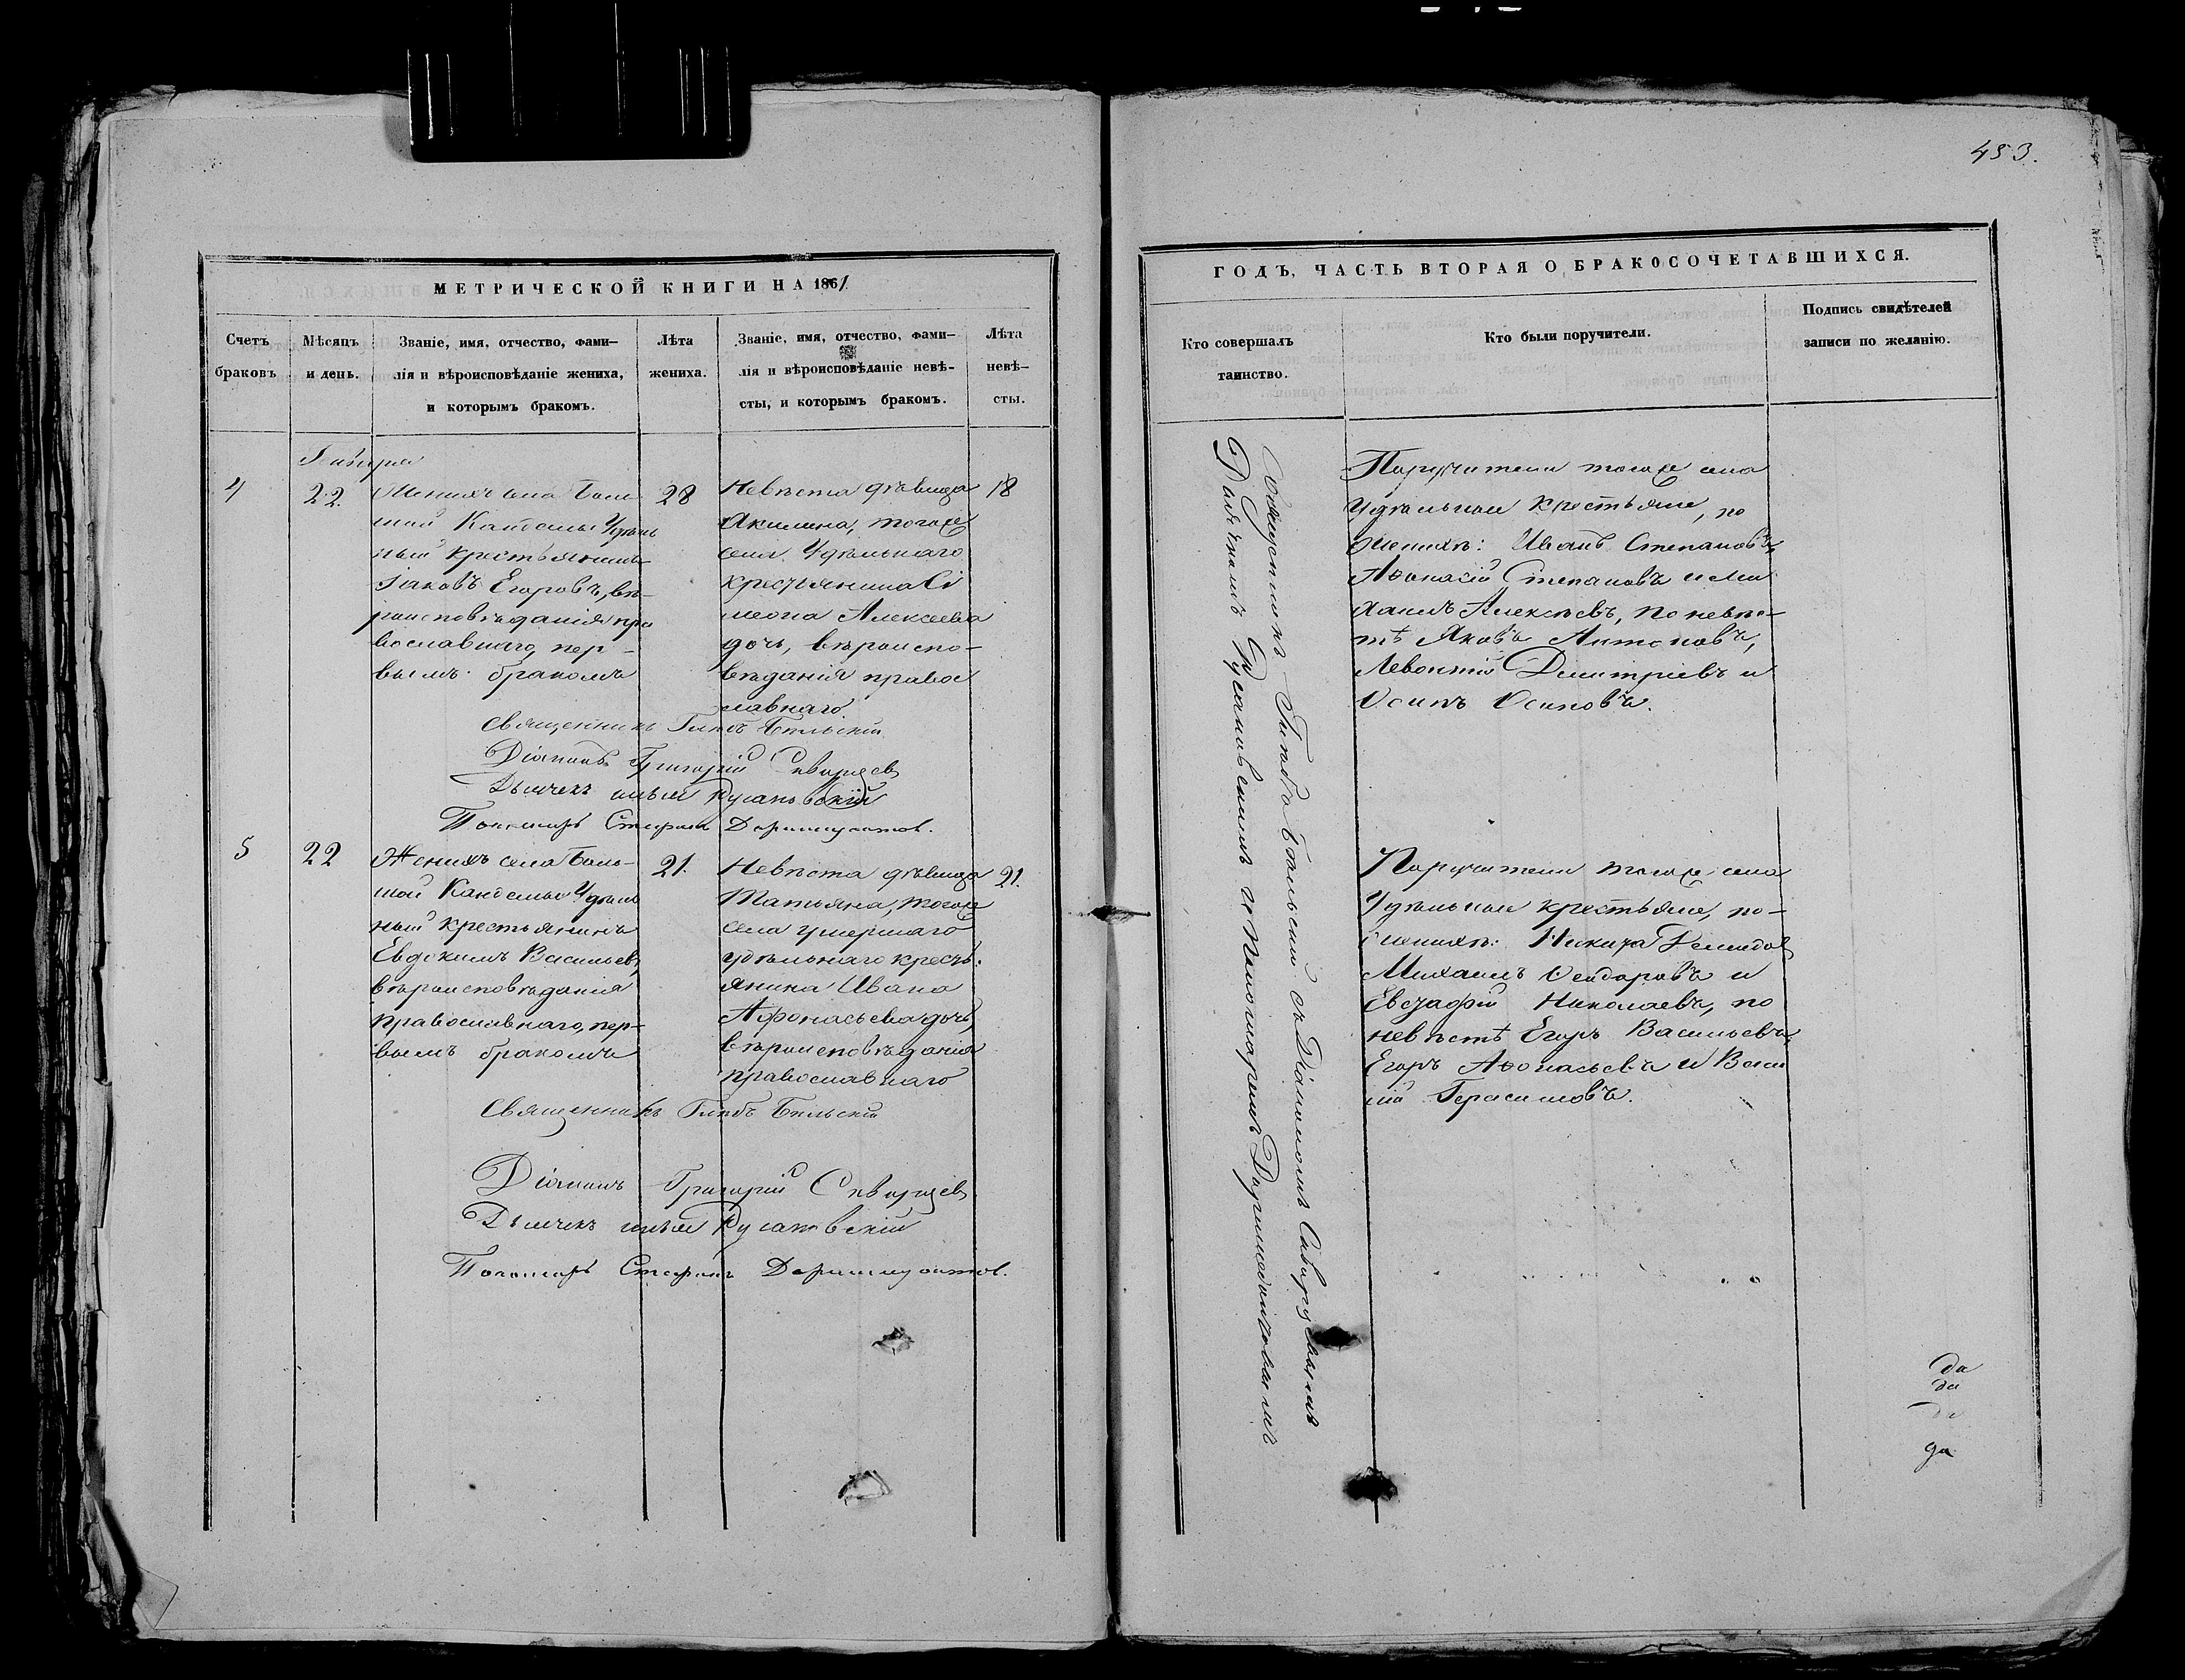 453.
МЕТРИЧЕСКОЙ КНИГИ НА 1861
Счетъ
браковъ
Мѣсяцъ
и день.
Званіе, имя, отчество, фами-
лія и вѣроисповѣданіе жениха,
и которымъ бракомъ.
Лѣта
жениха.
Званіе, имя, отчество, фами-
лія и вѣроисповѣданіе невѣ-
сты, и которымъ бракомъ.
Лѣта
невѣ-
сты.
4
22.
Женихъ села Боль
шой Кандалы Удѣль
ный крестьянинъ
Іаковъ Егоровъ, вѣ-
роисповѣданія пра
вославнаго, пер-
вымъ бракомъ
28
Невѣста дѣвица
Акилина, тогоже
села Удѣльнаго
крестьянина Си
меона Алексеева
дочь, вѣроиспо-
вѣданія правос
лавнаго.
18
Священникъ Глѣбъ Бѣльскій
Діаконъ Григорій Скворцев
Дьячекъ Русановскій
Пономарь Стефанъ
5
22
Женихъ села Боль-
шой Кандалы Удѣль
ный крестьянинъ
Евдокимъ Васильевъ,
вѣроисповѣданія
православнаго, пер-
вымъ бракомъ
21.
Невѣста дѣвица
Татьяна, тогоже
села умершаго
удѣльнаго кресть-
янина Ивана
Афонасьева дочь,
вѣроисповѣданія
православнаго
21.
Священникъ Глѣбъ Бѣльскій
Діаконъ Григорій Скворцев
Дьячекъ Русановскій
Пономарь Стефанъ
ГОДЪ, ЧАСТЬ ВТОРАЯ О БРАКОСОЧЕТАВШИХСЯ.
Кто совершалъ
таинство.
Кто были поручители.
Подпись свидѣтелей
записи по желанію.
Священникъ Глѣбъ Бѣльскій съ Діакономъ Скворцевымъ
Дьячкомъ Русановскимъ и Пономаремъ
Поручители тогоже села
Удѣльные крестьяне, по
женихѣ: Иванъ Степановъ,
Аѳонасій Степановъ и Ми
хаилъ Алексѣевъ, по невѣс-
тѣ Яковъ Антоновъ,
Левонтій Димитріевъ и
Осипъ Осиповъ.
Поручители тогоже села
Удѣльные крестьяне, по-
женихѣ: Никита Демидов
Михаилъ Ѳеодоровъ и
Николаевъ, по
невѣстѣ Егоръ Васильевъ,
Егоръ Аѳонасьевъ и Васи
лій Герасимовъ.
да
да
да
да